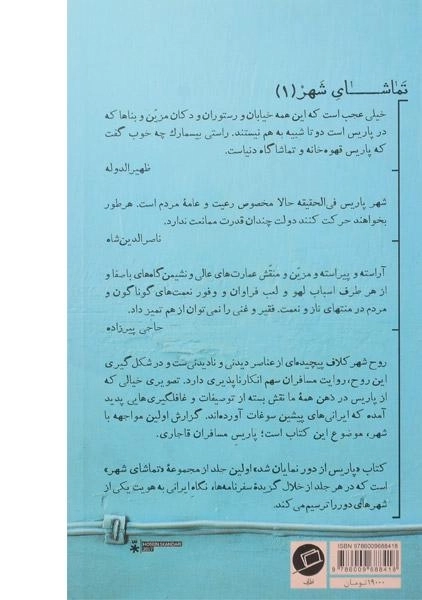 تماشای شهر (۱)
خیلی عجب است که این همه خیابان و رستوران و دکان مزیّن و بناها که
در پاریس است دو تا شبیه به هم نیستند. راستی بیسمارک چه خوب گفت
که پاریس قهوه‌خانه و تماشاگاه دنیاست.
ظهیرالدوله
شهر پاریس فی‌الحقیقه حالا مخصوص رعیت و عامهٔ مردم است. هرطور
بخواهند حرکت کنند دولت چندان قدرت ممانعت ندارد.
ناصرالدین‌شاه
آراسته و پیراسته و مزیّن و منقّش عمارت‌های عالی و نشیمن‌گاه‌های باصفا و
از هر طرف اسباب لهو و لعب فراوان و وفور نعمت‌های گوناگون و
مردم در منتهای ناز و نعمت. فقیر و غنی را نمی‌توان از هم تمیز داد.
حاجی پیرزاده
روح شهر کلاف پیچیده‌ای از عناصر دیدنی و نادیدنی‌ست و در شکل‌گیری
این روح، روایت مسافران سهم انکارناپذیری دارد. تصویری خیالی که
از پاریس در ذهن همهٔ ما نقش بسته از توصیفات و غافلگیری‌هایی پدید
آمده که ایرانی‌های پیشین سوغات آورده‌اند. گزارش اولین مواجهه با
شهر، موضوع این کتاب است؛ پاریسِ مسافران قاجاری.
کتاب «پاریس از دور نمایان شد» اولین جلد از مجموعهٔ «تماشای شهر»
است که در هر جلد از خلال گزیدهٔ سفرنامه‌ها، نگاهِ ایرانی به هویت یکی از
شهرهای دور را ترسیم می‌کند.
HOSEIN SKANDARI
2017
ISBN 9786009688418
9 786009 688418
۱۹۰۰۰ تومان